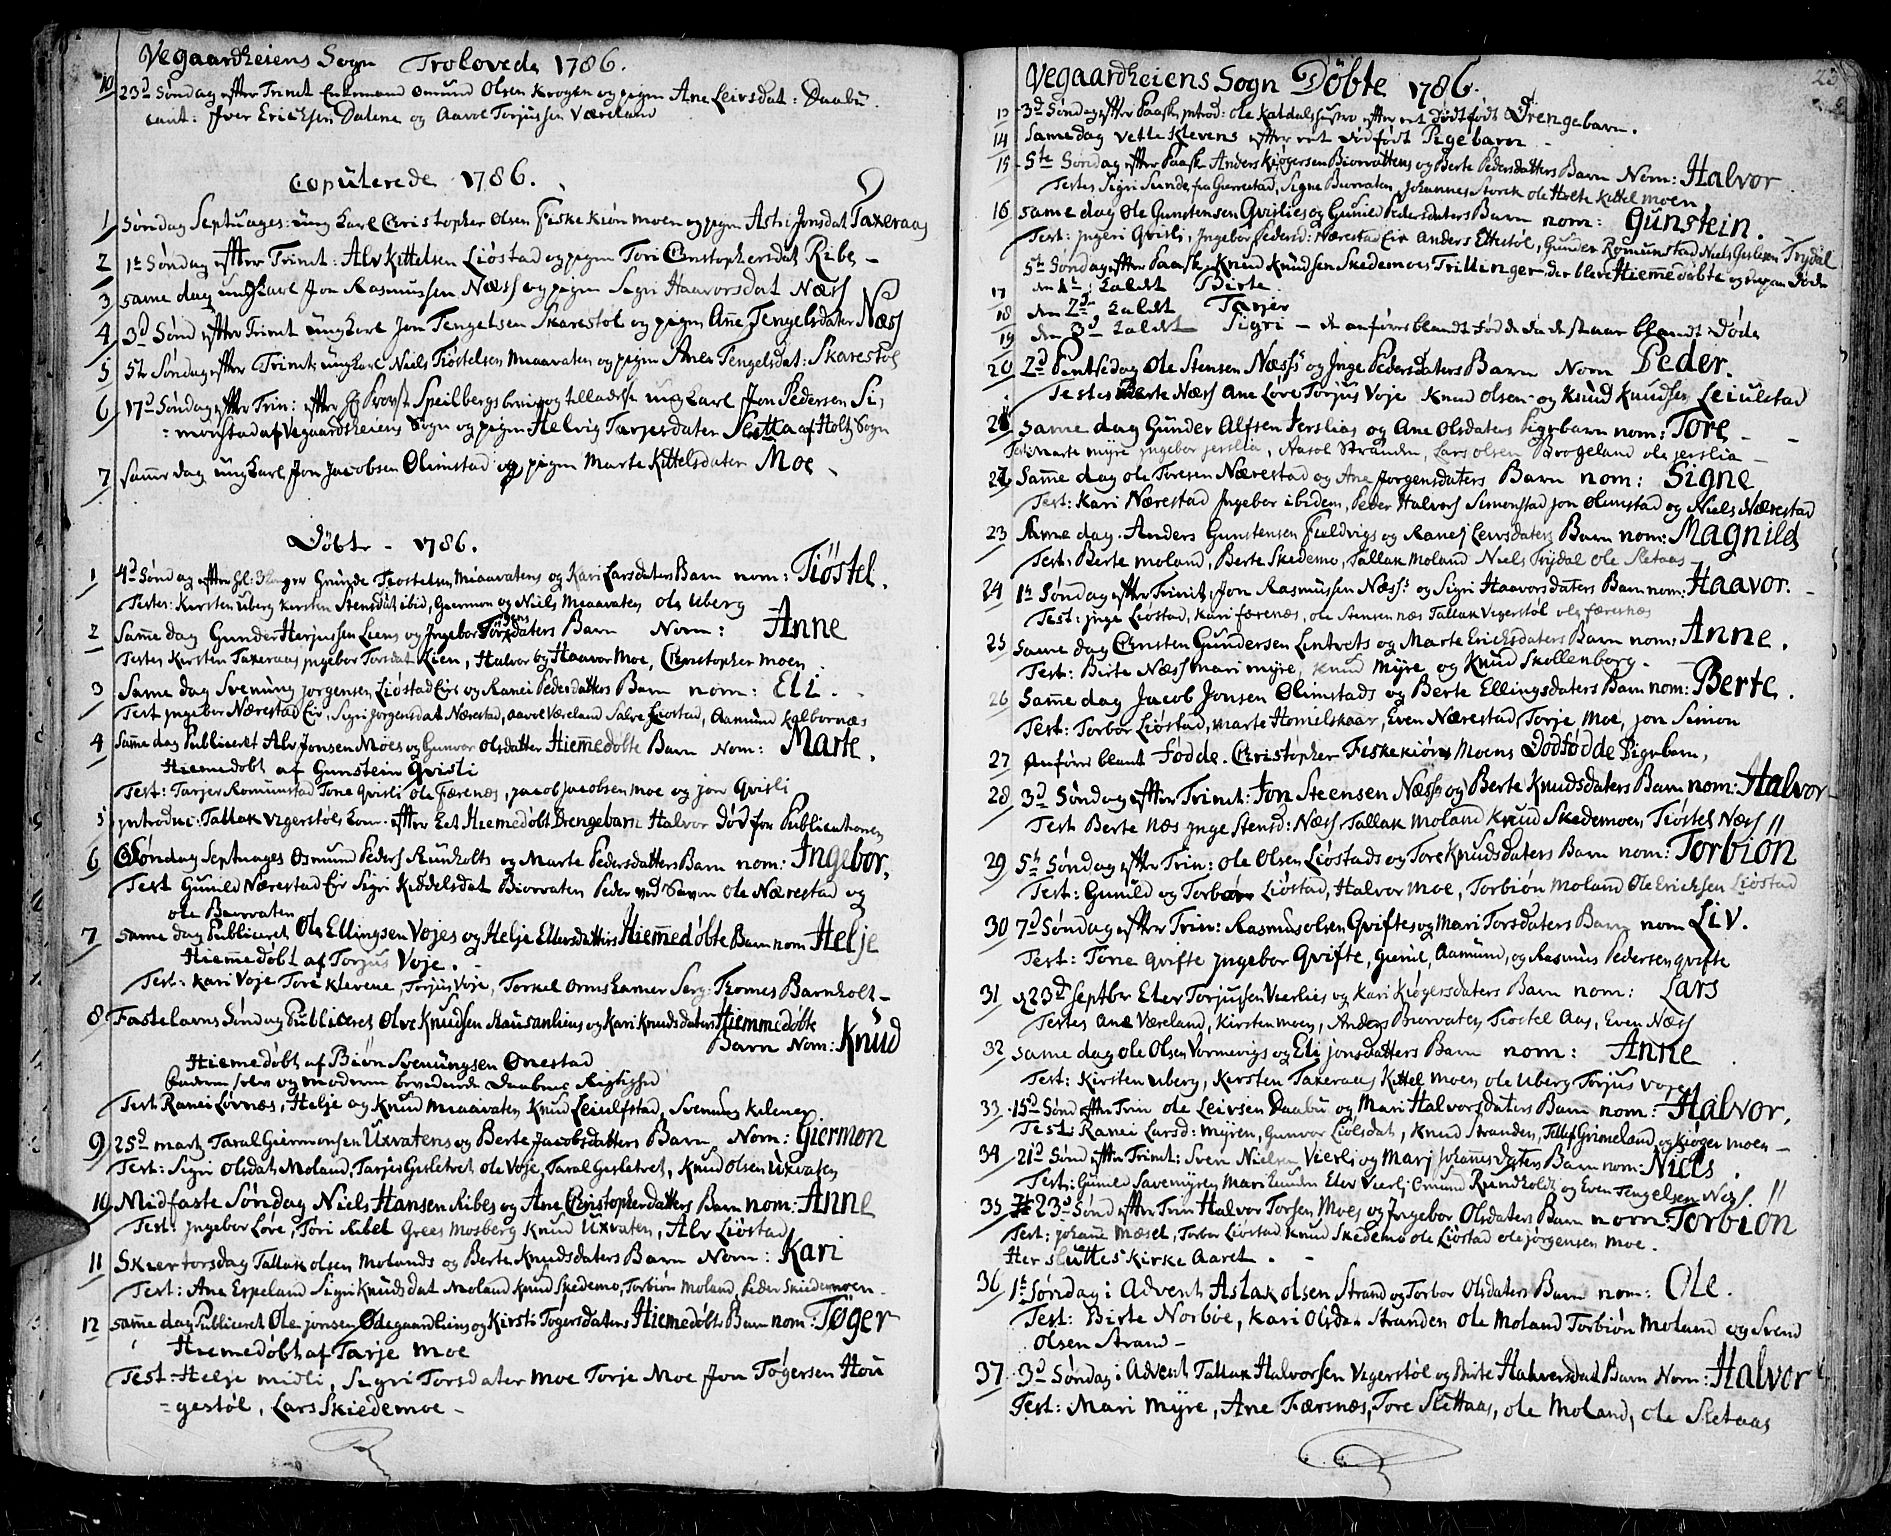 Vegaardheiens Sogn Trolovede 1786.
10 23d Søndag efter Trinit Enkemand Omund Olsen Krogen og pigen Ane Leivsdat: Daabu.
caut: Iver Ericksen Dalene og Aavol Torjussen Væreland
Copulerede 1786.
1 Søndag Septuages: ung karl Christopher Olsen Fiskekiønmoen og pigen Astri Jonsdat Taxeraas
2 1t Søndag efter Trinit: Alv Kittelsen Liøstad og pigen Tori Christophersdat Ribe
3 samme dag ung karl Jon Rasmussen Næss og pigen Segri Haavorsdat Næss
4 3d Sønd efter Trinit ung karl Jon Tengelsen Skarestøl og pigen Anne Tengelsdater Næss
5 5t Søndag efter Trinit: ung karl Niels Tiøstelsen Miaavaten og pigen Ane Tengelsdat: Skarestøl
6 17d Søndag efter Trin: efter Hr Provst Speilbergs tilladelse ung karl Jon Pedersen Si-
monstad af Vegaardsheiens Sogn og pigen Helvig Tarjesdater Sletta af Holt Sogn
7 Samme dag ung karl Jon Jacobsen Olimstad og pigen Marte Kittelsdater Moe
Døbte - 1786.
1 4d Søndag efter hl: 3 Konger Gunde Tiostelsen Miaavatens og Kari Larsdaters Barn nom: Tiøstel.
Testes: Kirsten Uberg Kirsten Stensdat ibid, Giermon og Niels Miaavaten Ole Uberg
2 Samme dag Gunder Herjussen Liens og Ingebor Torsdaters Barn Nom: Anne
Testes Kirsten Taxeraas Ingebor Torsdat Lien, Halvor og Haavor Moe, Christopher Moen
3 Same dag Svenung Jorgensen Liøstad Eie og Ranei Pedersdatters Barn nom: Eli.
Test Ingebor Nærestad Eie, Sigri Jorgensdat Nærestad, Aavol Væreland Salve Liøstad, Aamund Kalbornæs
4 Samme dag Publiceret Alv Jonsen Moes og Gunvor Olsdatter Hiemmedøbte Barn Nom: Marte.
Hiemedøbt af Gunstein Qvisli
Test: Tarjer Romunstad Tone Qvisli Ole Færenæs, Jacob Jacobsen Moe og Jon Qvisli
5 introduc: Tallak Vigerstøls kone efter Eet Hiemedøbt Drengebarn Halvor Død for Publicationen
6 Søndag Septuages Osmund Peders Runholts og Marte Pedersdatters Barn nom: Ingebor,
Test Gunild Nærestad Eie Sigri Kiddelsdat Biorvaten Peder ved Saven Ole Nærestad og
Ole Biorvaten
7 same dag Publiceret Ole Ellingsen Vojes og Helje Ellersdatters Hiemmedøbte Barn nom Helje
Hiemedøbt af Torjus Voje.
Test: Kari Voje Tore Klevene, Torjus Voje, Torkel Ormshamer Serg: Thomes Barnholt
8 Fastelavns Søndag Publiceret Olve Knudsen Hausanliens og Kari Knudsdaters Hiemmedøbte
Barn Nom: Knud
Hiemedøbt af Biøn Svenungsen Ønestad
Faderen selv og moderen bevidende Daabens Rigtighed
Test Ranei Løvnæs, Helje og Knud Miaavaten Knud Leiulfstad, Svenung Kilener
9 25d marts Taral Giermonsen Uxvatens og Berte Jacobsdatters Barn Nom: Giermon
Test: Sigri Olsdat Moland, Tarjer Gesletvet Ole Voje, Taral Gesletvet, Knud Olsen Uxvaten
10 Midfaste Søndag Niels Hansen Ribes og Ane Christopherdatters Barn nom: Anne
Test: Ingebor Lore, Tori Ribet Grees Mosberg Knud Uxvaten, Alv Liøstad
11 Skiertorsdag Tallak Olsen Molands og Berte Knudsdaters Barn Nom: Kari
Test: Ane Espeland Sigri Knudsdat Moland Knud Skedemo, Torbiön Moland, Peder Skiedemoen
12 samme dag Publiceret Ole Jonsen Ødegaardliens og Kirsti Tøgersdaters Hiemedøbte Barn nom: Tøger
Hiemedøbt af Tarje Moe
Test: Helje Midli, Segri Torsdater Moe Torje Moe Jon Tøgersen Hou
gestøl, Lars Skiedemoe
Vegaardheiens Sogn Døbte 1786.
23
13 3d Søndag efter Paaske introd: Ole Katdals hustro efter eet dødfødt Drengebarn.
14 Same dag Vetle Klevens efter eet dødfødt Pigebarn
15 5te Søndag efter Paask Anders Kiogersen Biorvattens og Berte Pedersdatters Barn Nom: Halvor.
Testes Sigri Sunde fra Gierrestad, Signe Biorvaten, Johannes Storek Ole Herete Kittelmoen
16 same dag Ole Gunstensen Qvislies og Gunild Pedersdaters Barn nom: Gunstein.
Test: Ingeri Qvisli, Ingebor Pedersd: Nærestad Eie Anders Ettestøl, Gunder Romunstad Niels Trydal
5te Søndag efter Paask Knud Knudsen Skedemoes Trillinger der bleve Hiemmedøbte og
17 den 1te kaldt Birte.
18 den 2d kaldt Tarjer
19 den 3d kaldt Sigri - de anføres blandt fødde da de staar blandt Døde
20 2d Pintsedag Ole Stensen Næss og Inge Pedersdaters Barn Nom Peder.
Testes Berte Næss Ane Love Torjus Voje Knud Olsen og Knud Knudsen Leiulstad
21 same dag Gunder Alfsen Jerslias og Ane Olsdaters Pigebarn nom: Tore
Test: Marte Myre Ingebor Jerslia, Aasol Stranden, Lars Olsen Brogeland Ole Jerslia
22 Samme dag Ole Toresen Nærestad og Ane Jorgensdaters Barn nom: Signe
Test: Kari Nærestad Ingebor ibidem, Peder Halvors Simonstad Jon Olimstad og Niels Nærestad
23 Same dag Anders Gunstensen Fieldvigs og Ranei Leivsdaters Barn nom: Magnild
Test: Berte Moland, Berte Skedemo, Tallak Moland Niels Trydal Ole Sletaas
24 1t Søndag efter Trinit, Jon Rasmussen Næss og Sigri Haavorsdaters Barn nom: Haavor.
Test: Inge Liøstad, Kari Færenæs, Ole Stensen Næs Tallak Vigerstøl Ole Færenæs
25 same dag Christen Gundersen Lintvets og Marte Ericksdaters Barn nom: Anne.
Test: Birte Næss Mari Myre, Knud Myre og Knud Skollenborg
26 Samme dag Jacob Jonsen Olimstads og Berte Ellingsdaters Barn nom: Berte.
Test: Torbor Liøstad, Marte Homelskaar, Even Nærestad, Torje Moe, Jon Simon
27 Anføres blant Fødde. Christopher Fiskekiøn Moens Dødfødde Pigebarn,
28 3d Søndag efter Trinit: Jon Steensen Næss og Berte Knudsdaters Barn nom: Halvor
Test Berte Næs Inge Stensd: Næss Tallak Moland Knud Skedemoen, Tiøstel Næss
29 5t Søndag efter Trin: Ole Olsen Liøstads og Tore Knudsdaters Barn nom: Torbiön
Test: Gunild og Torbor Liøstad, Halvor Moe, Torbiøn Moland Ole Ericksen Liøstad
30 7d Søndag efter Trin: Rasmus Olsen Qviftes og Mari Torsdaters Barn nom Liv.
Test: Tone Qvifte Ingebor Qvifte, Gunil, Aamund, og Rasmus Pedersen Qvifte
31 d 23d Septbr Elev Torjussen Vierlies og Kari Kiøgersdaters Barn nom: Lars
Testes Ane Væreland, Kirsten Moen, Anders Biorvaten Tiostel Aas, Even Næss
32 same dag Ole Olsen Vormevigs og Eli Jonsdatters Barn nom: Anne
Test: Kirsten Uberg, Kirsten Taxeraas Kittel Moen Ole Uberg Torjus Voje
33 15d Sønd efter Trin Ole Leivsen Daabu og Mari Halvorsdaters Barn nom: Halvor.
Test: Ranei Larsd: Myren, Gunvor Liolsdat, Knud Stranden, Tellef Grimeland, og Kiøger Moen
34 21d Sønd efter Trinit: Sven Nielsen Vierli og Mari Johannesdaters Barn nom: Niels.
Test: Gunild Savemyren Mari Lunden Elev Vierli Omund Rundholdt og Even Tengelsen Næs
35 23d Sønd efter Trin Halvor Torsen Moes og Ingebor Olsdaters Barn nom: Torbiön
Test: Johane Mæsel, Torbor Liöstad Knud Skedemo Ole Liöstad Ole Jørgensen Moe.
Her sluttes Kirke Aaret.
36 1t Søndag i Advent Aslak Olsen Strand og Torbor Olsdaters Barn nom: Ole.
Test: Birte Norböe, Kari Olsdat Stranden Ole Moland Torbiön Moland og Svend
Olsen Strand
37 3d Søndag i Advent Tallak Halvorsen Vigerstøl og Birte Halvorsdat Barn Nom: Halvor
Test: Mari Myre, Ane Færsnæs, Tore Slettaas, Ole Moland, Ole Sletaas